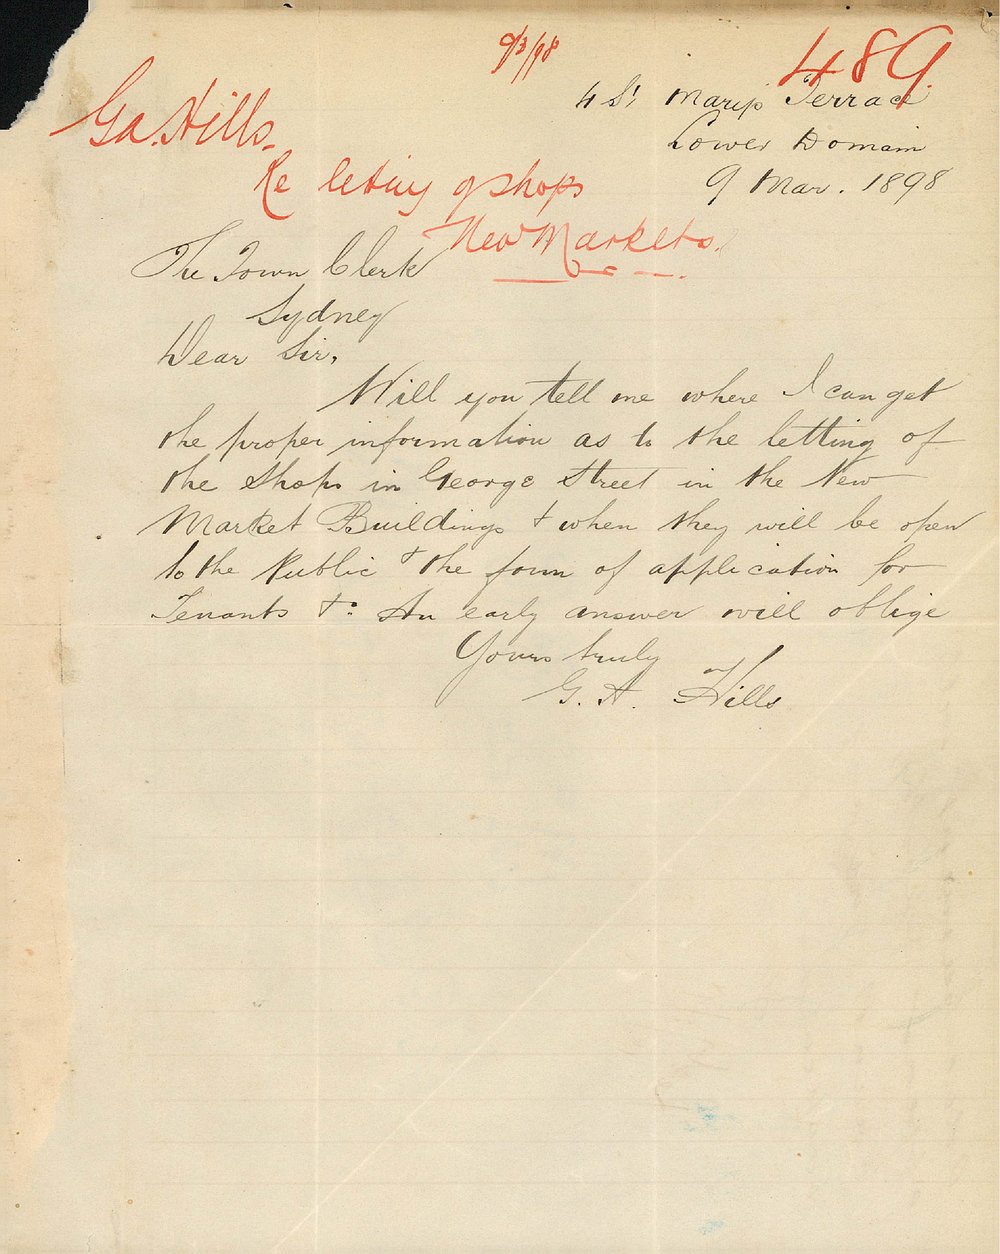 9/3/98
489.
4 St Marys Terrace
Lower Domain
9 Mar. 1898
Ga. Hills.
Re leting of shops
New Markets.
The Town Clerk
Sydney
Dear Sir,
Will you tell me where I can get
the proper information as to the letting of
the Shops in George Street in the New
Market Buildings & when they will be open
to the Public & the form of application for
Tenants &c An early answer will oblige
Yours truly
G. A. Hills